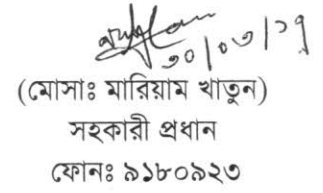 ৩০/০৩/১৭
(মোসাঃ মারিয়াম খাতুন)
সহকারী প্রধান
ফোনঃ ৯১৮০৯২৩